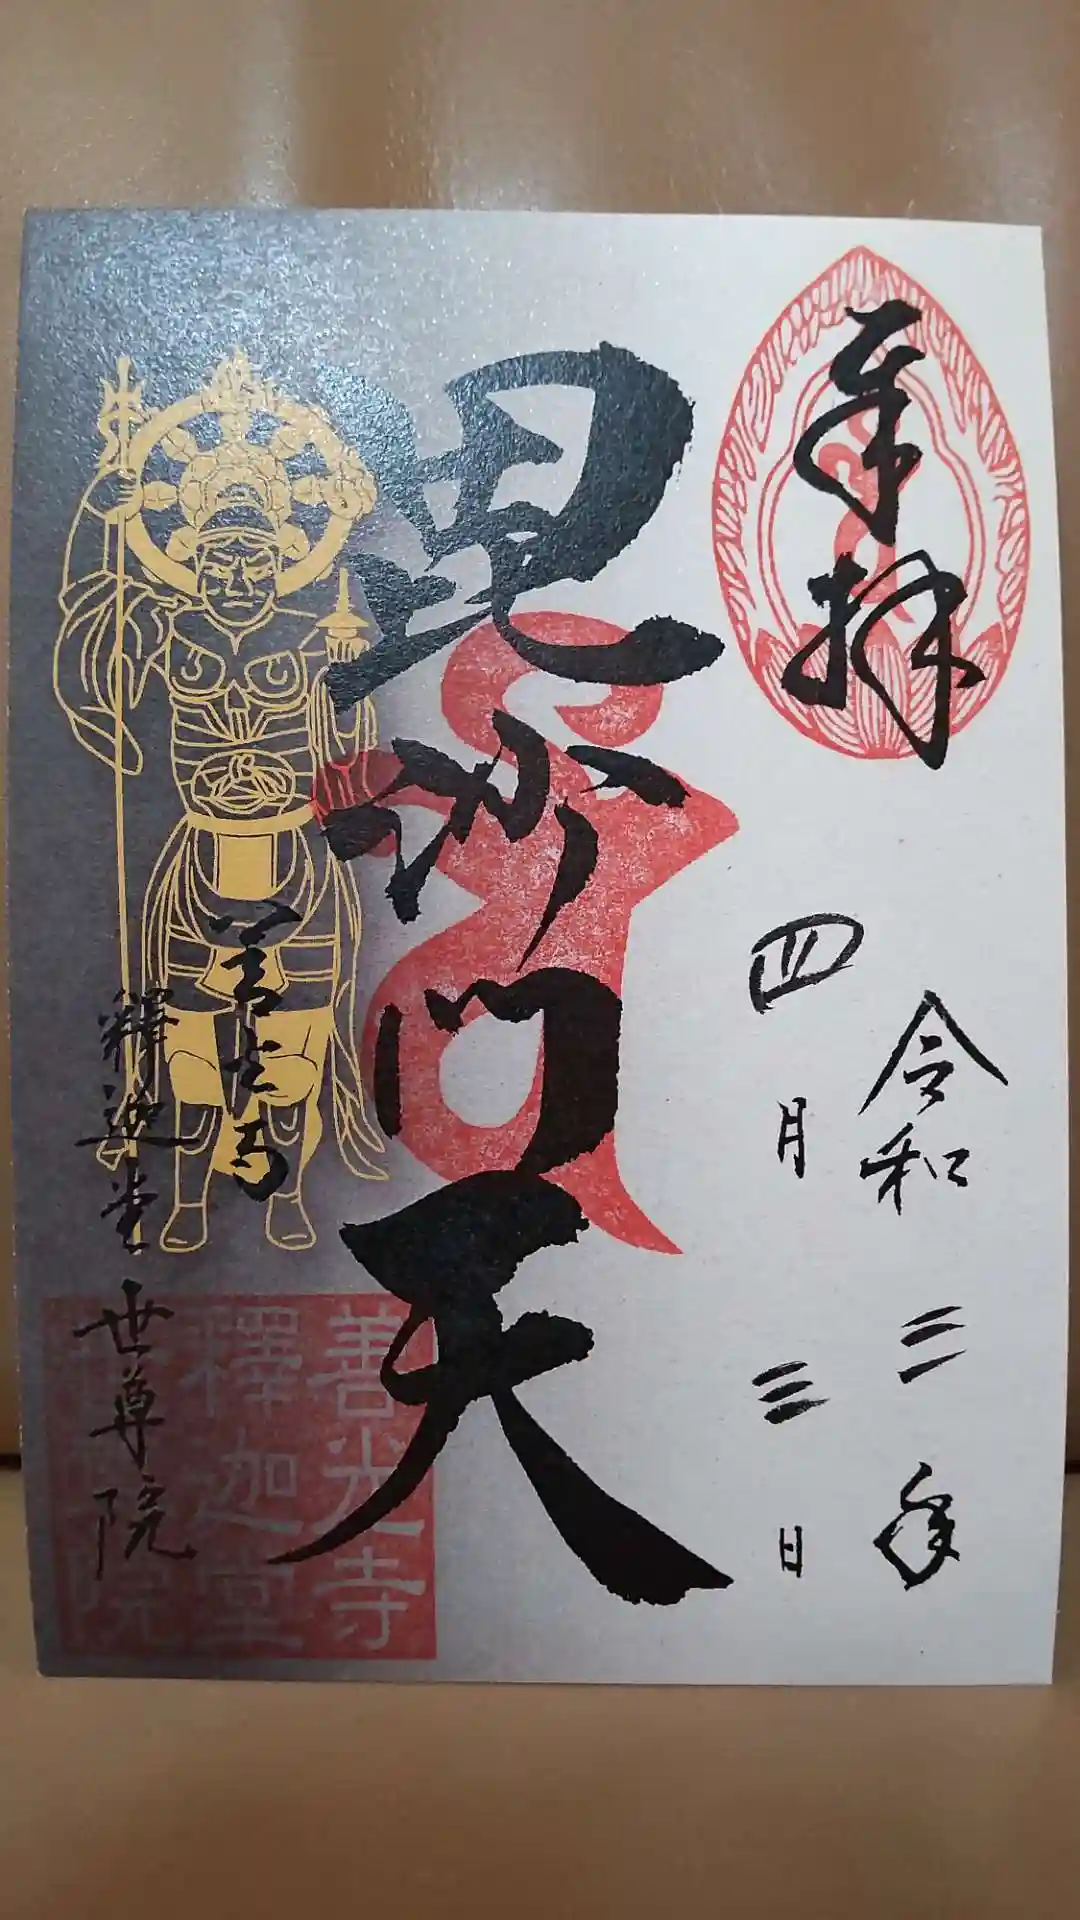 奉拝
令和三年
四月三日
毘沙门天
善光寺
釋迦堂世尊院
善光寺
釋迦堂
世尊院